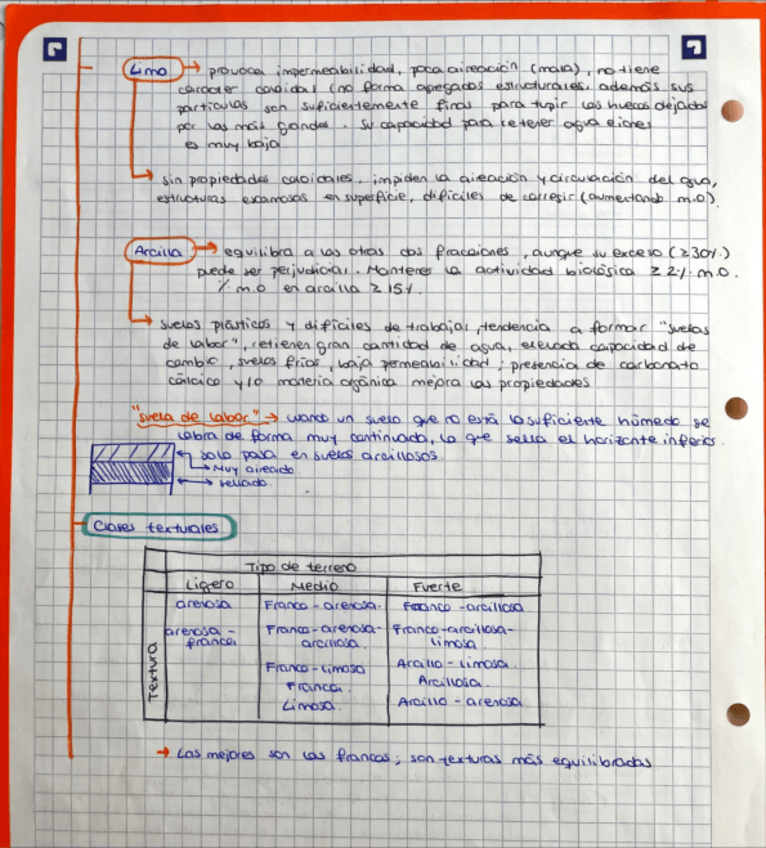 Limo → provoca impermeabilidad, poca aireación (mala), no tiene
carácter coloidal (no forma agregados estructurales, además sus
partículas son suficientemente finas para tupir los huecos dejados
por las más grandes. Su capacidad para retener agua e iones
es muy baja
→ sin propiedades coloidales, impiden la aireación y circulación del agua,
estructuras escamosas en superficie, difíciles de corregir (aumentando m.o).
Arcilla → equilibra a las otras dos fracciones, aunque su exceso (≥30%)
puede ser perjudicial. Mantener la actividad biológica ≥ 2% m.o.
% m.o en arcilla ≥ 15%.
→ suelos plásticos y difíciles de trabajar, tendencia a formar "suelas
de labor", retienen gran cantidad de agua, elevada capacidad de
cambio, suelos fríos, baja permeabilidad; presencia de carbonato
cálcico y/o materia orgánica mejora las propiedades
"suela de labor" → cuando un suelo que no está lo suficiente húmedo se
labra de forma muy continuada, lo que sella el horizonte inferior.
solo pasa en suelos arcillosos.
→ Muy aireado
→ sellado.
Clases texturales
Tipo de terreno
Ligero Medio Fuerte
Textura
arenosa Franco-arenosa. Franco-arcillosa
arenosa- Franco-arenosa- Franco-arcillosa-
franca arcillosa. limosa
Franco-limosa Arcillo-limosa.
Franca. Arcillosa.
Limosa. Arcillo-arenosa
→ Las mejores son las francas; son texturas más equilibradas